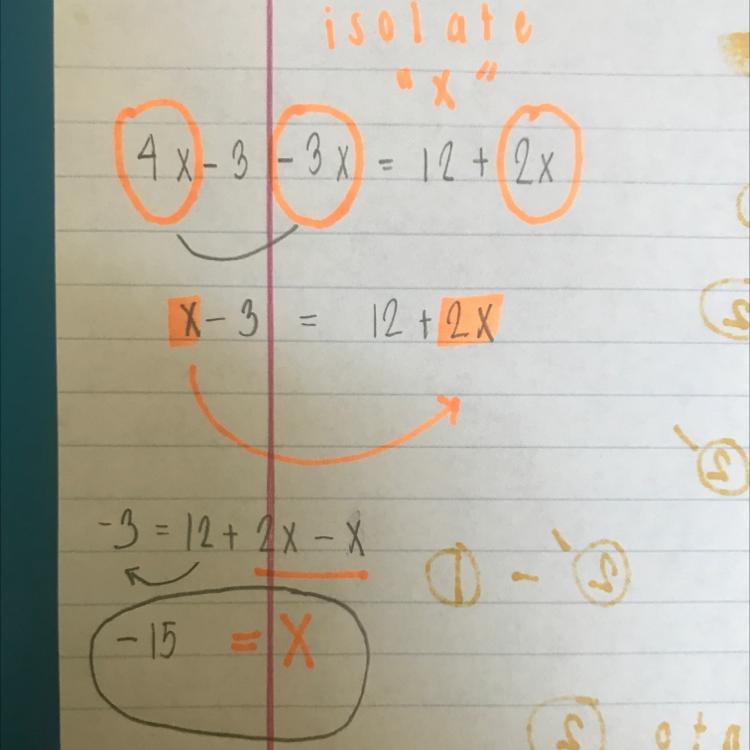 isolate
"x"
4x - 3 - 3x = 12 + 2x
x - 3 = 12 + 2x
-3 = 12 + 2x - x
-15 = X